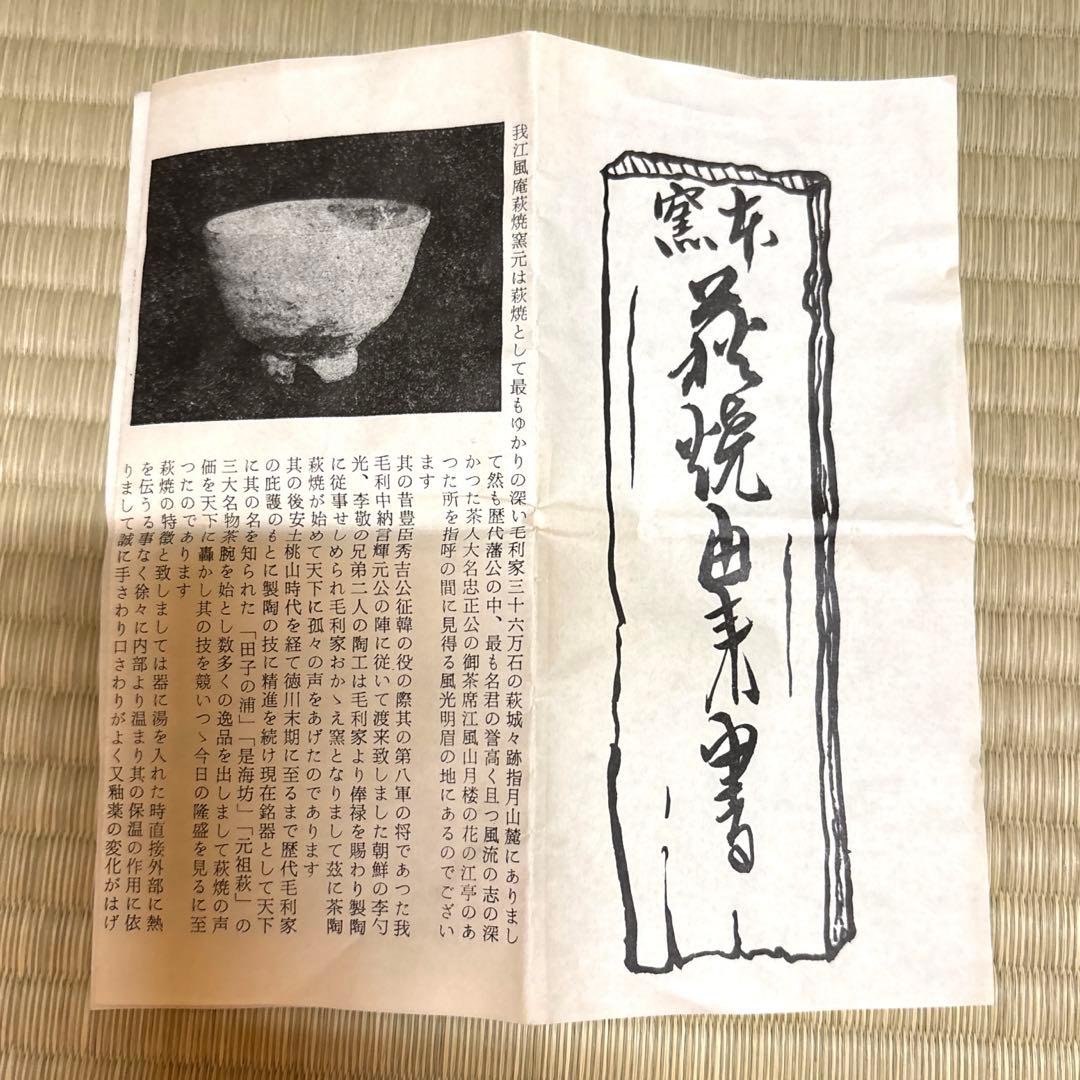 本窯
萩焼由来書
我江風庵萩焼窯元は萩焼として最もゆかりの深い毛利家三十六万石の萩城々跡指月山麓にありまし
て然も歴代藩公の中、最も名君の誉高く且つ風流の志の深
かつた茶人大名忠正公の御茶席江風山月楼の花の江亭のあ
つた所を指呼の間に見得る風光明眉の地にあるのでござい
ます
其の昔豊臣秀吉公征韓の役の際其の第八軍の将であつた我
毛利中納言輝元公の陣に従いて渡来致しました朝鮮の李勺
光、李敬の兄弟二人の陶工は毛利家より俸禄を賜わり製陶
に従事せしめられ毛利家おかゝえ窯となりまして茲に茶陶
萩焼が始めて天下に孤々の声をあげたのであります
其の後安土桃山時代を経て徳川末期に至るまで歴代毛利家
の庇護のもとに製陶の技に精進を続け現在銘器として天下
に其の名を知られた「田子の浦」「是海坊」「元祖萩」の
三大名物茶腕を始とし数多くの逸品を出しまして萩焼の声
価を天下に轟かし其の技を競いつゝ今日の隆盛を見るに至
つたのであります
萩焼の特徴と致しましては器に湯を入れた時直接外部に熱
を伝うる事なく徐々に内部より温まり其の保温の作用に依
りまして誠に手さわり口さわりがよく又釉薬の変化がはげ